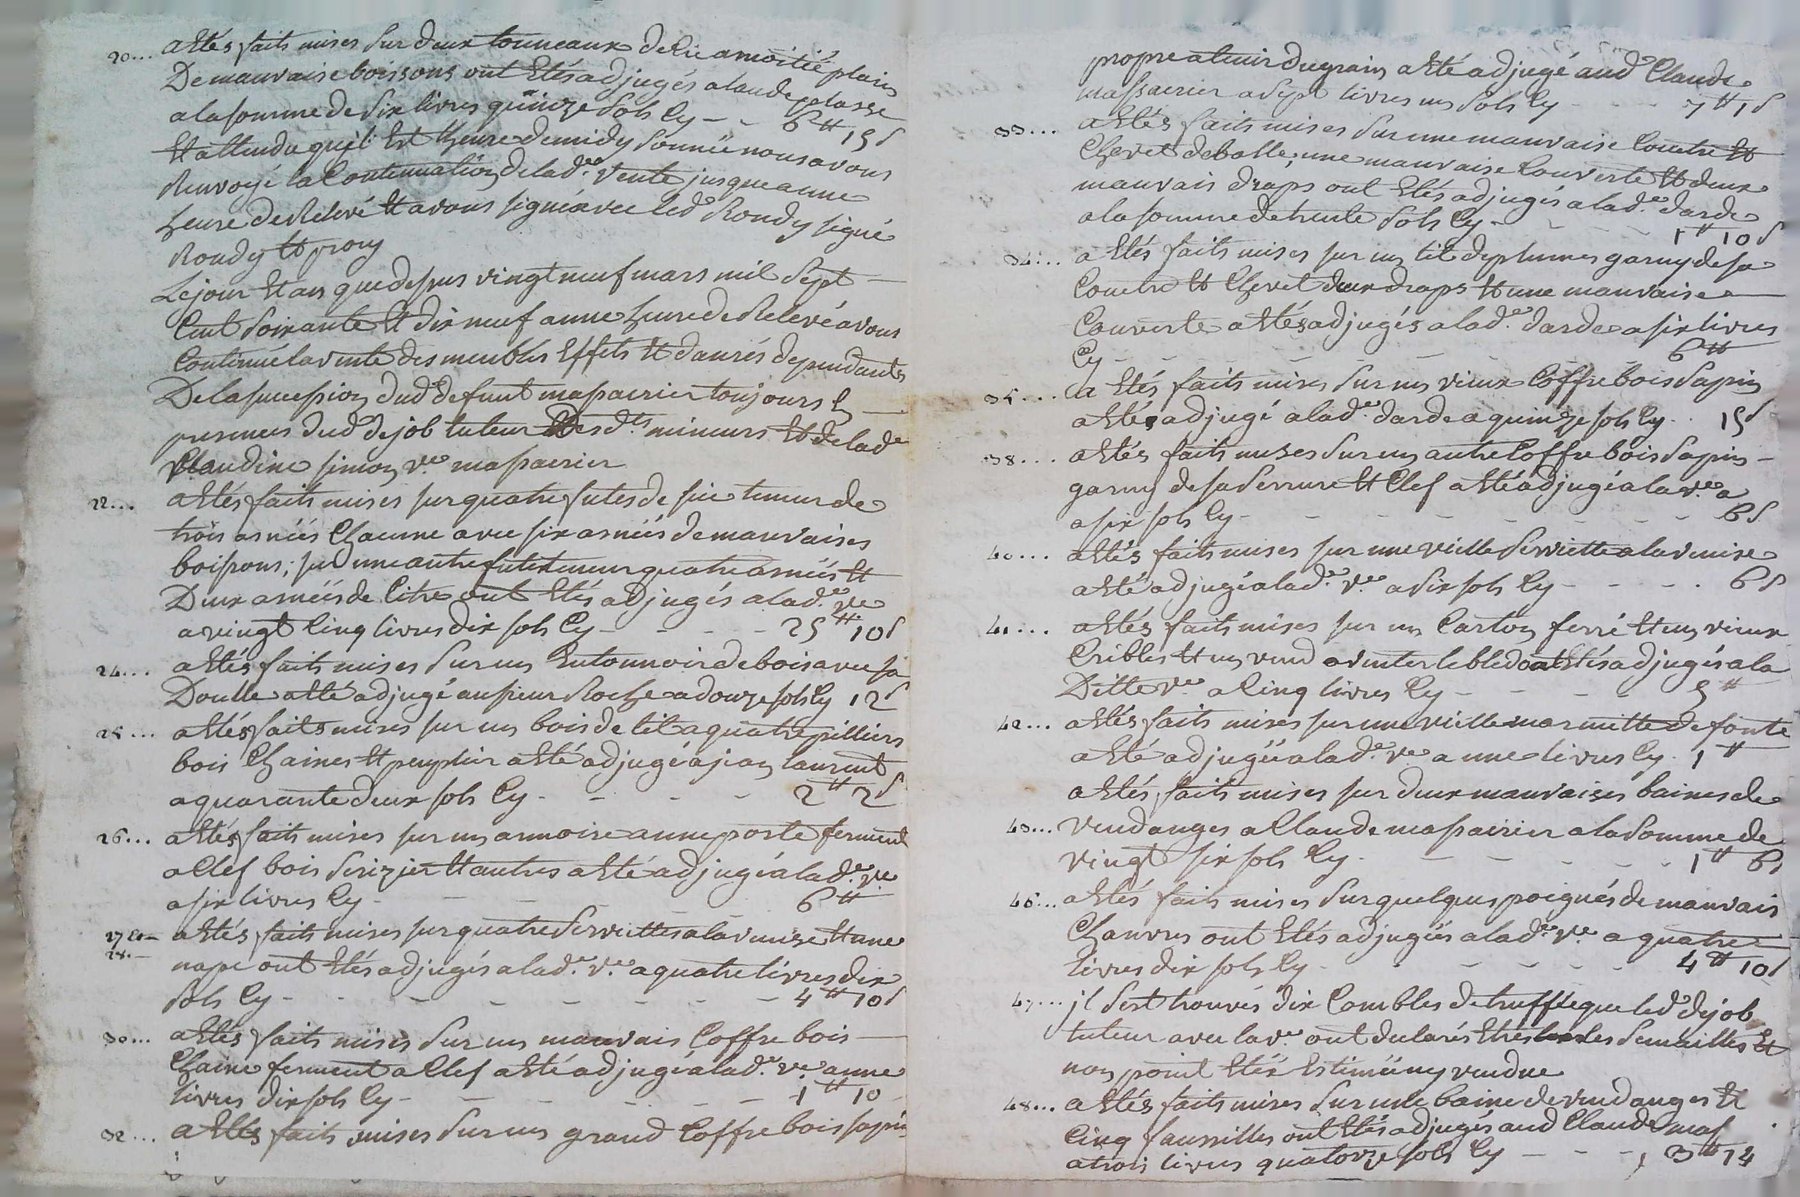 20... a Etés faits mises sur deux tonneaux de lie a moitié plain
De mauvaise boissons ont Etés adjugés a laude
a la somme de six livres quinze sols Cy - - 6 ₶ 15 s
Et attendu quil Est lheure de midy sonnée nous avons
Renvoyé la Continuation de lad.e vente jusque a une
heure de Relevé Et avons signé avec led. Rondy signé
Rondy Et prony
Le jour Et an que dessus vingt neuf mars mil sept
Cent soixante Et dix neuf a une heure de Relevé avons
Continué la vente des meubles Effets Et danrés dependants
De la succession dud. defunt massacrier toujours En
presences dud. dejob tuteur desd.ts mineurs Et de lade
Claudine simon v.e massacrier
22... a Etés faits mises sur quatre futes de sie teneur de
trois asnées Chacune avec six asnées de mauvaises
boissons; sur une autre fute teneur quatre asnées Et
Deux asnées de litre ont Etés adjugés a lad.e v.e
a vingt Cinq livres dix sols Cy - - - - 25 ₶ 10 s
24... a Etés faits mises sur un Entonnoir de bois avec sa
Doulle a Eté adjugé au sieur Roche a douze sols Cy 12 s
25... a Etés faits mises sur un bois de lit a quatre pilliers
bois Chaines Et peuplier a Eté adjugé a jean laurent
a quarante deux sols Cy - - - - 2 ₶ 2 s
26... a Etés faits mises sur un armoire a une porte ferment
a Clef bois serizier Et autres a Eté adjugé a lad.e v.e
a six livres Cy - - - - 6 ₶
27 Et 28. a Etés faits mises sur quatre serviettes a la venise Et une
nape ont Etés adjugés a lad.e v.e a quatre livres dix
sols Cy - - - - - - - 4 ₶ 10 s
30... a Etés faits mises sur un mauvais Coffre bois
Chaine ferment a Clef a Eté adjugé a lad.e v.e a une
livres dix sols Cy - - - - - - 1 ₶ 10
32... a Etés faits mises sur un grand Coffre bois sapin
propre a tenir du grain a Eté adjugé aud. Claude
massacrier a sept livres un sols Cy - - - 7 ₶ 1 s
33... a Etés faits mises sur une mauvaise Couetre Et
Chevet de balle; une mauvaise Couverte Et deux
mauvais draps ont Etés adjugés a lad.e darde
a la somme de trente sols Cy - - - - 1 ₶ 10 s
34... a Etés faits mises sur un lit de plumes garny de sa
Couetre Et Chevet deux draps Et une mauvaise
Couverte a Etés adjugés a lad.e darde a six livres
Cy - - - - - - - 6 ₶
35.... a Etés faits mises sur un vieux Coffre bois sapin
a Etés adjugé a lad.e darde a quinze sols Cy . 15 s
38... a Etés faits mises sur un autre Coffre bois sapin -
garny de sa serrure Et Clef a Eté adjugé a la v.e a
a six sols Cy - - - - - - - - 6 s
40... a Etés faits mises sur une vielle serviette a la venise
a Eté adjugé a lad.e v.e a six sols Cy - - - - 6 s
41... a Etés faits mises sur un Carton ferré Et un vieux
Cribles Et un a le bled ont Etés adjugés a la
Ditte v.e a Cinq livres Cy - - - - 5 ₶
42... a Etés faits mises sur une vielle marmitte de fonte
a Eté adjugé a lad.e v.e a une livres Cy . 1 ₶
a Etés faits mises sur deux mauvaises baines de
43... vendanges a Claude massairier a la somme de
vingt six sols Cy - - - - - - - 1 ₶ 6 s
46... a Etés faits mises sur quelques poignés de mauvais
Chanvres ont Etés adjugés a lad.e v.e a quatre
livres dix sols Cy - - - - - - 4 ₶ 10 s
47... jl sest trouvés dix Combles de truffle que led. dejob
tuteur avec la v.e ont declarés Etres les semailles Et
non point Eter Estimé ny vendue
48... a Etés faits mises sur une baine de vendanges Et
Cinq faussilles ont Etés adjugés aud. Claude mas
a trois livres quatorze sols Cy - - - 3 ₶ 14